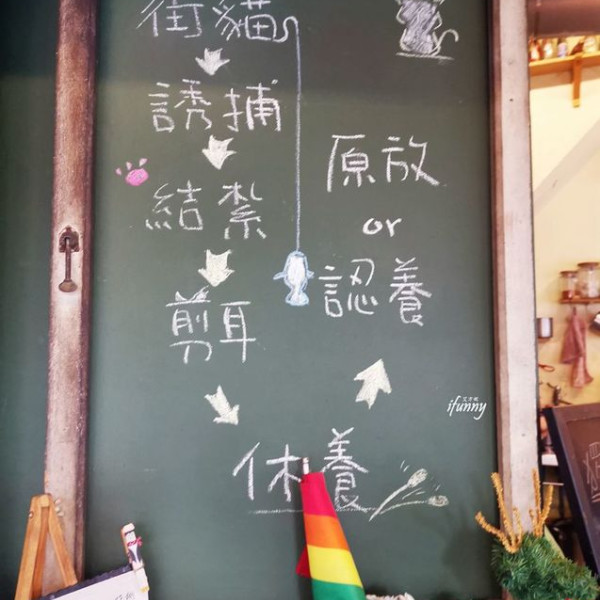 街貓
誘捕
結紮
剪耳
休養
原放
or
認養
ifunny